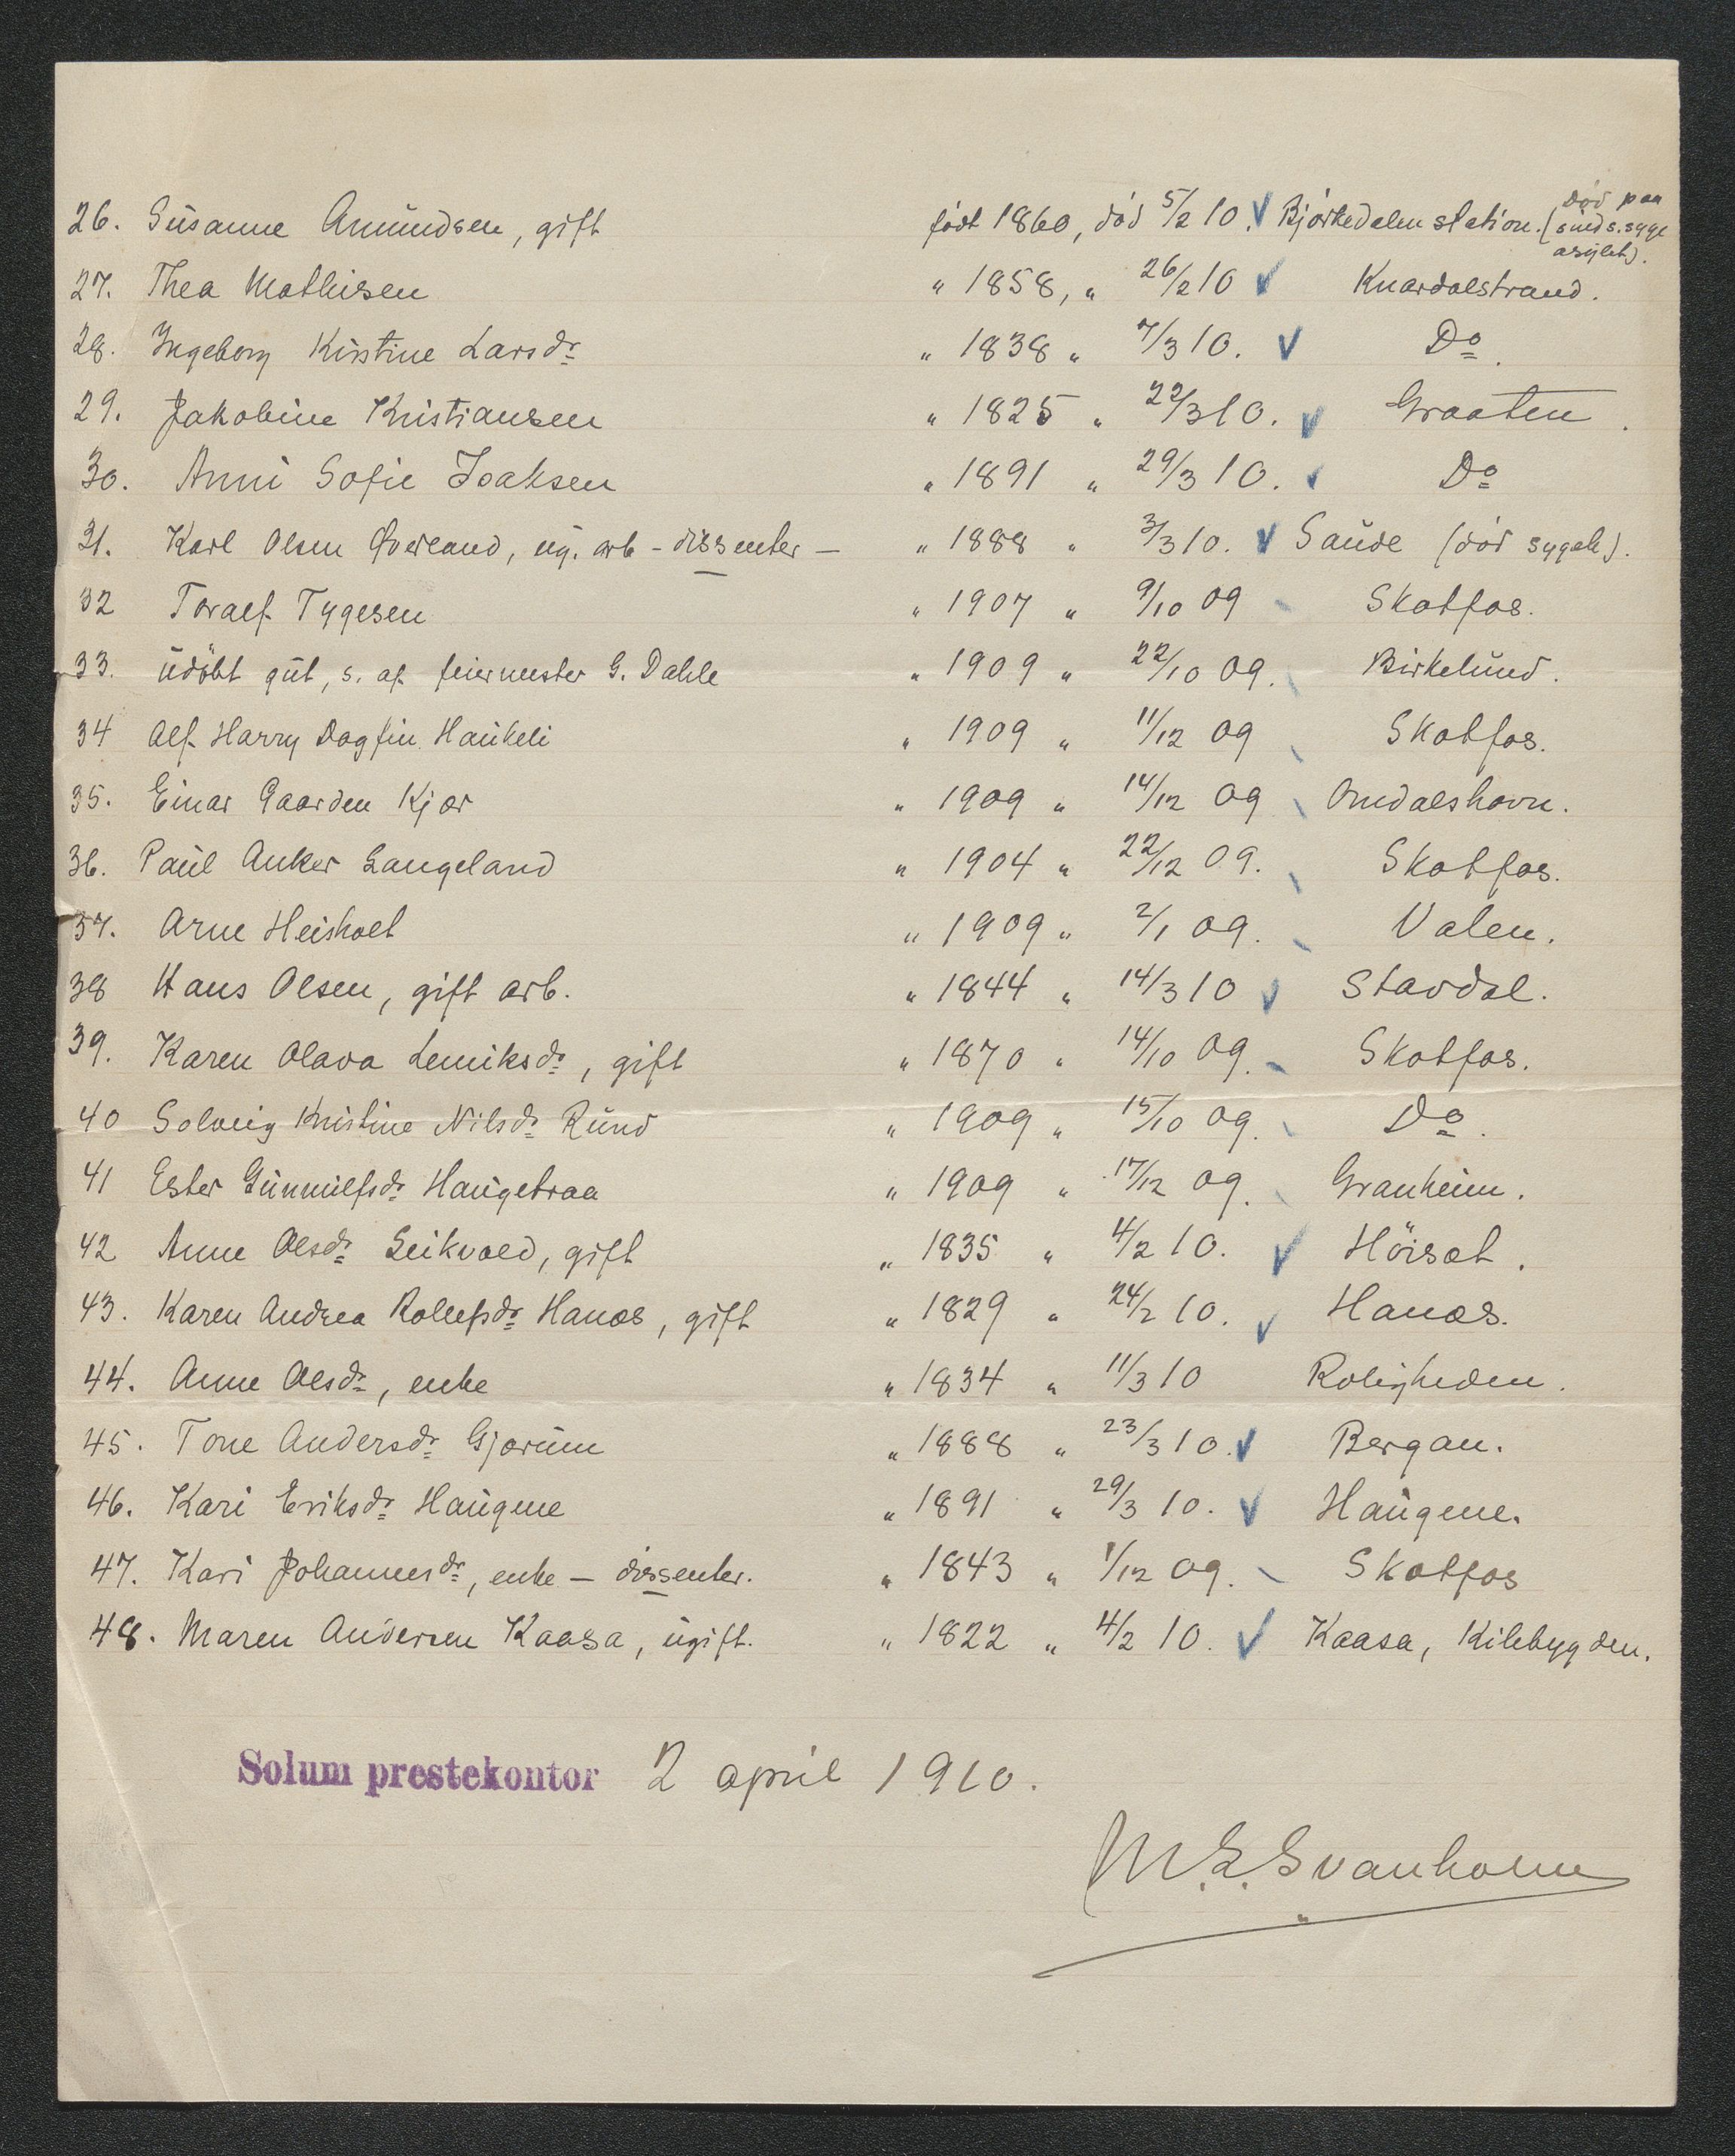 26. Susanne Amundsen, gift født 1860, død 5/2 10. Bjørkedalen station. (død paa sinds.syge asylet).
27. Thea Mathisen " 1858, " 26/2 10 Knardalstrand.
28. Ingeborg Kirstine Larsdr " 1838 " 7/3 10. Do.
29. Jakobine Kristiansen " 1825 " 22/3 10. Graaten.
30. Anni Sofie Isaksen " 1891 " 29/3 10. Do
31. Karl Olsen Øverland, ug. arb - dissenter - " 1888 " 3/3 10. Saude (død sygeh).
32 Toralf Tygesen " 1907 " 9/10 09 Skotfos.
33. udøbt gut, s. af feiermester G. Dahle " 1909 " 22/10 09. Birkelund.
34 Alf Harry Dagfin Haukeli " 1909 " 11/12 09 Skotfos.
35. Einar Gaarden Kjær " 1909 " 14/12 09 Omdalshavn.
36. Paul Anker Langeland " 1904 " 22/12 09. Skotfos.
37. Arne Heisholt " 1909 " 2/1 09. Valen.
38 Hans Olsen, gift arb. " 1844 " 14/3 10 Stavdal.
39. Karen Olava Lemiksdr, gift " 1870 " 14/10 09. Skotfos.
40 Solveig Kristine Nilsdr Rund " 1909 " 15/10 09. Do.
41 Ester Gunnulfsdr Haugetraa " 1909 " 17/12 09. Granheim.
42 Anne Olsdr Leikvold, gift " 1835 " 4/2 10. Höisæt.
43. Karen Andrea Rollefsdr Hanæs, gift " 1829 " 24/2 10. Hanæs.
44. Anne Olsdr, enke " 1834 " 11/3 10 Roligheden.
45. Tone Andersdr Gjærum " 1888 " 23/3 10. Bergan.
46. Kari Eriksdr Haugene " 1891 " 29/3 10. Haugene.
47. Kari Johannesdr, enke - dissenter. " 1843 " 1/12 09. Skotfos
48. Maren Andersen Kaasa, ugift. " 1822 " 4/2 10. Kaasa, Kilebygden.
Solum prestekontor 2 april 1910.
M. L. Svanholm